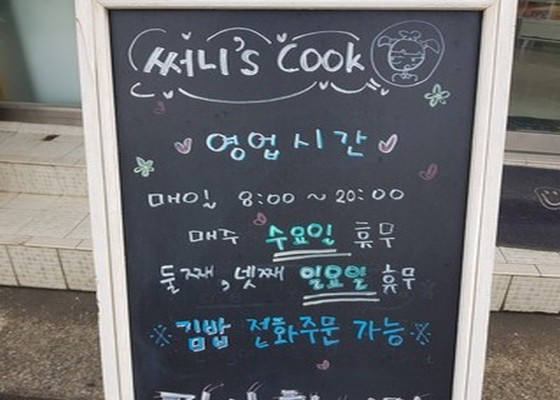 써니's Cook
영업시간
매일 8:00 ~ 20:00
매주 수요일 휴무
둘째, 넷째 일요일 휴무
※김밥 전화주문 가능※